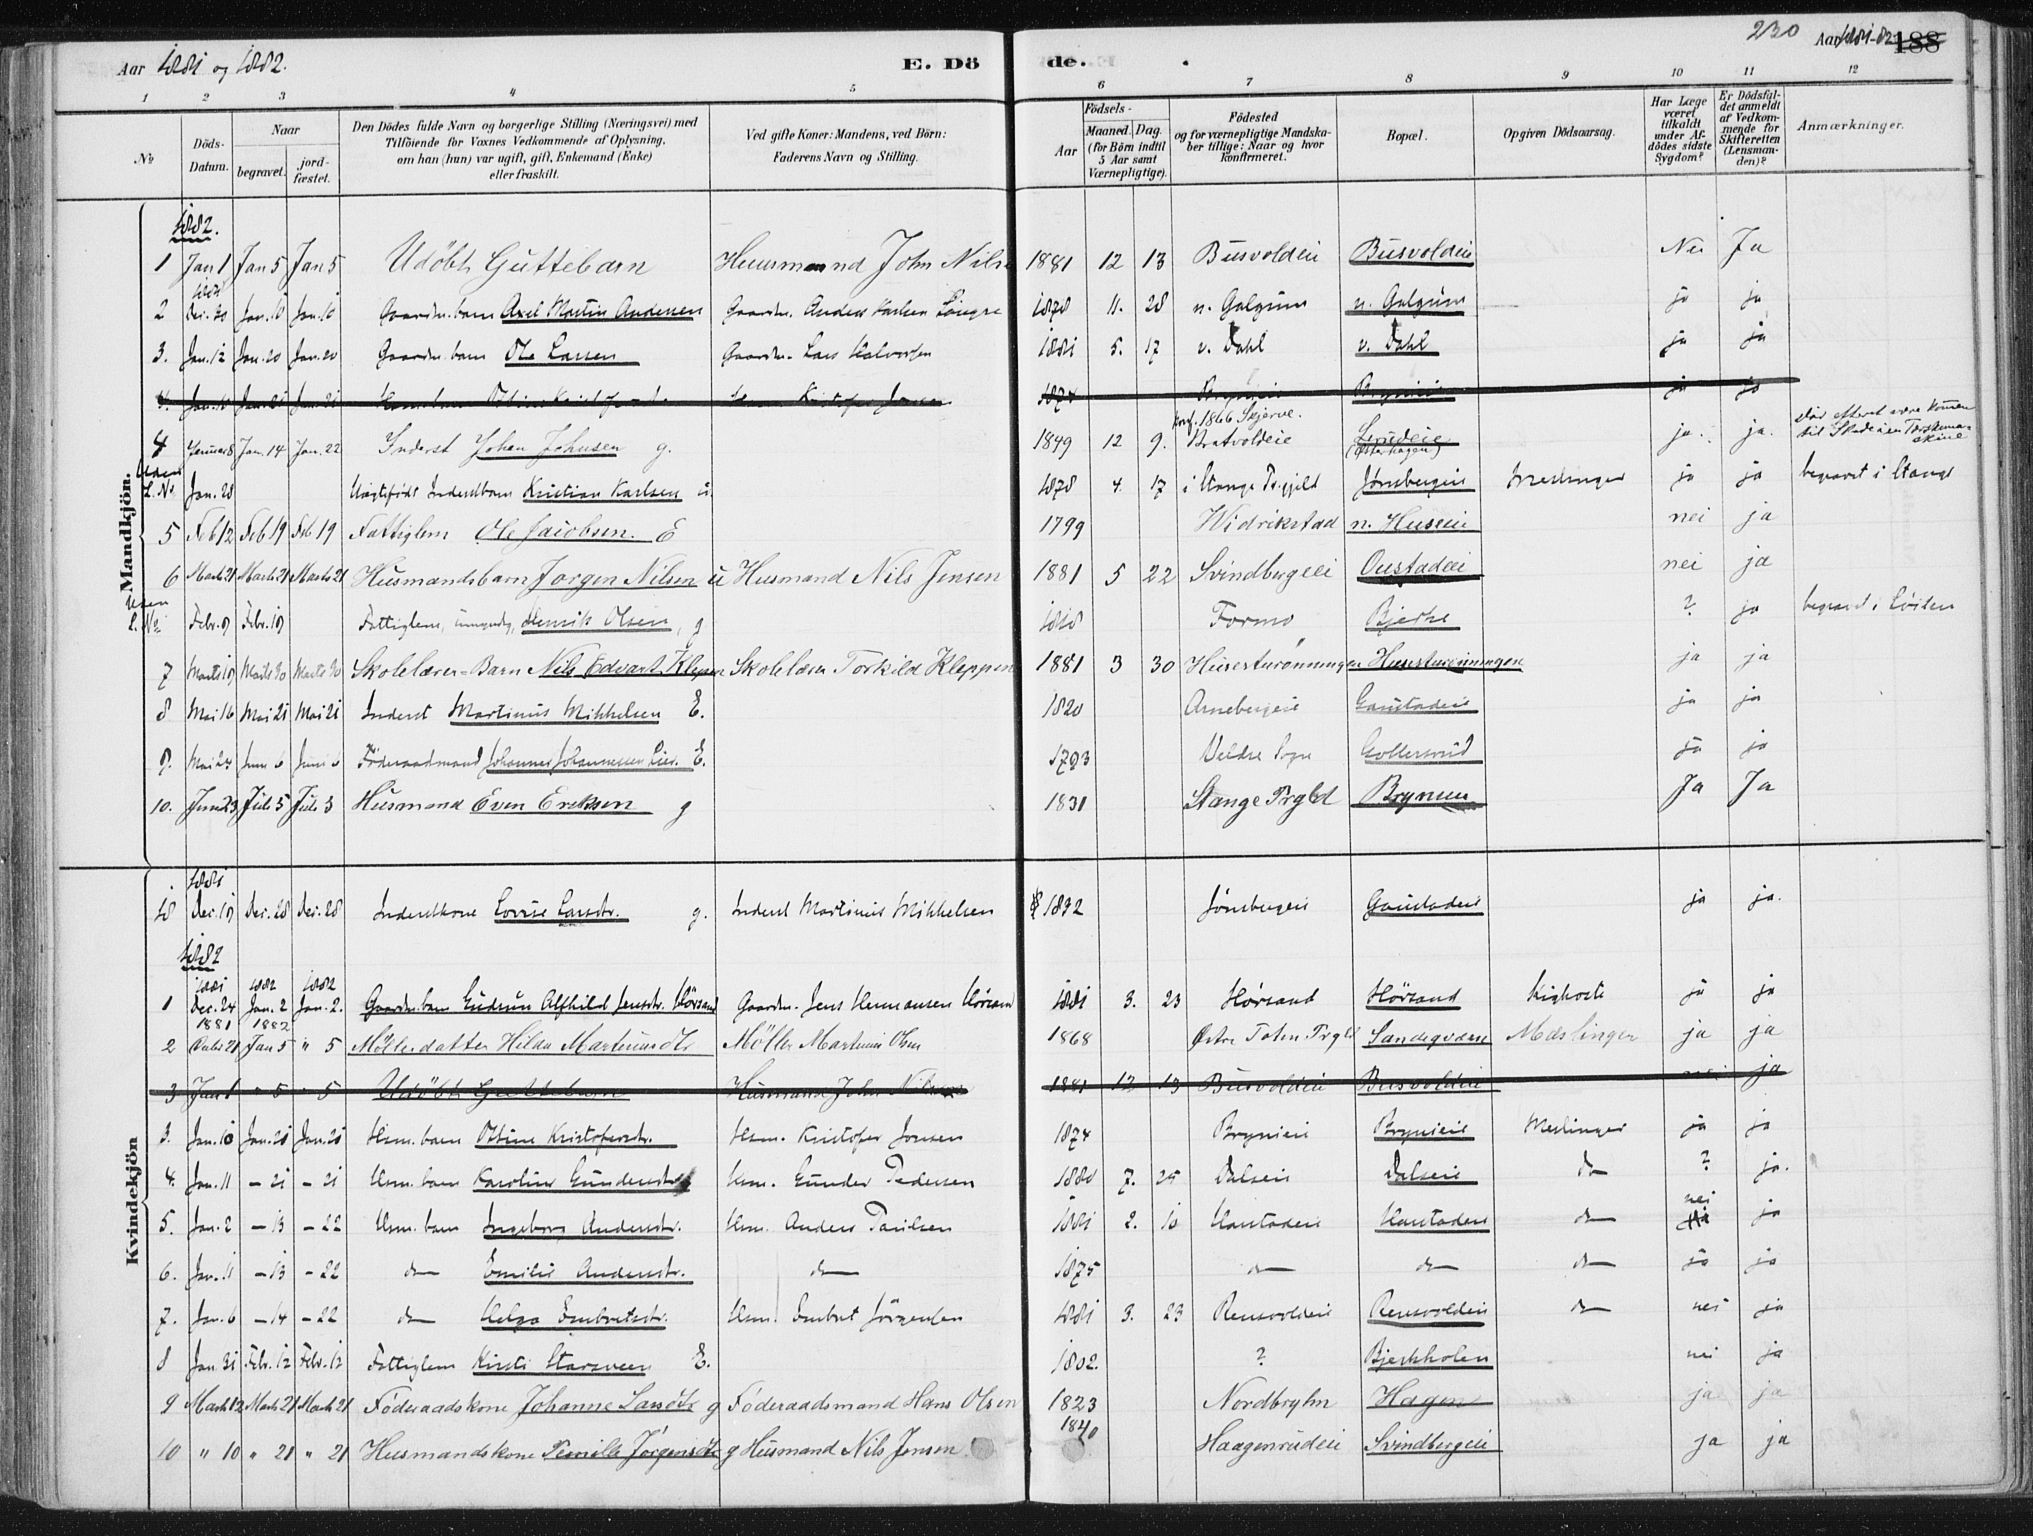 Aar 1881 og 1882.
E. Döde.
230 Aar 1881-82 188
1 2 3 4 5 6 7 8 9 10 11 12
No
Döds-Datum.
Naar begravet. jord-fæstet.
Den Dödes fulde Navn og borgerlige Stilling (Næringsvei) med Tilföiende for Voxnes Vedkommende af Oplysning, om han (hun) var ugift, gift, Enkemand (Enke) eller fraskilt.
Ved gifte Koner: Mandens, ved Börn: Faderens Navn og Stilling.
Födsels-
Aar Maaned. Dag. (for Börn indtil 5 Aar samt Værnepligtige).
Födested og for værnepligtige Mandskaber tillige: Naar og hvor konfirmeret.
Bopæl.
Opgiven Dödsaarsag.
Har Læge været tilkaldt under Afdödes sidste Sygdom?
Er Dödsfaldet anmeldt af Vedkommende for Skifteretten (Lensmanden)?
Anmærkninger.
Mandkjön.
1882.
1 Jan 1 Jan 5 Jan 5 Udöbt Guttebarn Huusmand John Nilse 1881 12 13 Busvoldeie Busvoldeie Nei Ja
2 1881 Dec. Jan. Jan. Gaardm. barn Axel Martin Andersen Gaardm. Anders Karlsen 1878 11. 28 n. Galgum n. Galgum ja ja
3. Jan. 12 Jan. 20 Jan. 20 Gaardm. barn Ole Larsen Gaardm. Lars Halvorsen 1881 5. 17 v. Dahl v. Dahl ja ja
4. Jan. 10 Jan. 21 Jan. 21 Kristofer Jonsen 1874 Brynieie Brynieie ja ja
4 Januar 8 Jan. 14 Jan. 22 Inderst Johan Johnsen g. 1849 12 9. konf. 1866 Skjerve. Bratvoldeie (Østerhagen) ja. ja. til Skade i en Tærskemaskine
Uden L. No Jan. 28 Uægtefødt Inderstbarn Kristian Karlsen u. 1878 4. 17 i Stange Prgjeld Jønsbergeie Meslinger ja ja begravet i Stange
5 Feb 12 Feb 19 Feb 19 Fattiglem Ole Jacobsen. E 1799 Widrikstad n. Huseie nei ja
6 Marts 21 Marts 21 Husmandsbarn Jorgen Nilsen u Husmand Nils Jensen 1881 5 22 Svindbergeie Oustadeie nei ja
Uden L. No Febr. 9 Febr. 19 Fattiglem, Henrik Olsen, g 1818 Formo Bjerke ? ja begravet i Löiten
7 Marts 19 Marts 30 Marts 30 Skolelærer-Barn Nils Edvart Kleppen Skolelærer Torkild Kleppen 1881 3 30 Husesturønningen Husesturønningen ja ja
8 Mai 16 Mai 21 Mai 21 Inderst Martinus Mikkelsen E. 1820 Arnebergeie Gaustadeie ja ja
9. Mai 27 Juni 6 Juni 6 Föderaadmand Johannes Johannessen Lier. E. 1793 Veldre Sogn Gollersrud ja ja
10. Juni 23 Juli 5 Juli 3 Husmand Even Eriksen g 1831 Stange Prgld Brynieie Ja Ja
Kvindekjön
1881
18 Dec. 19 Dec. 28 Dec. 28 Inderstkone Lovise Larsdtr. g. Inderst Martinus Mikkelsen 1832 Jønsbergeie Gaustadeie ja ja.
1882
1 1881 Dec. 24 1882 Jan. 2 1882 Jan. 2. Gaardm. barn Gudrun Alfhild Jensdtr. Hörsand Gaardm. Jens Hermansen Hörsand 1881 3. 23 Hörsand Hörsand Kighoste ja ja
2 1881 Decbr 21 1882 Jan 5 " 5 Møllerdatter Hilda Martinusdtr Møller Martinius Olsen 1868 Østre Toten Prgld Sandeqværn Mæslinger ja ja
3 Jan 1 " 5 " 5 Udöbt Guttebarn Husmand John Nilsen 1881 12 13 Busvoldeie Busvoldeie nei ja
3. Jan. 10 Jan. 21 Jan. 21 Hsm. barn Othine Kristofersdtr. Hsm. Kristofer Jonsen 1874 Brynieie Brynieie Meslinger ja ja
4. Jan. 11 - 21 - 21 Hsm. barn Karoline Gundersdtr Hsm. Gunder Pedersen 1880 7. 25 Dalseie Dalseie do ? ja.
5. Jan. 2 - 13 - 22 Hsm. barn Ingeborg Andersdtr. Hsm. Anders Paulsen 1881 2. 10 Haustadeie Haustadeie do nei ja
6. Jan. 11 - 13 - 22 do Emilie Andersdtr. do 1875 do do do ja ja
7. Jan. 6 - 14 - 22 do Helga Embretsdtr. Hsm. Embret Jörgensen 1881 3. 23 Rensvoldeie Rensvoldeie do nei ja
8 Jan. 31 Febr. 12 Febr. 12 Fattiglem Kirsti Starsveen E. 1802. ? Bjerkholen nei ja
9 Marts 12 Marts 21 Marts 21 Föderaadskone Johanne Larsdtr g Föderaadsmand Hans Olsen 1823 Nordbryhn Hagen ja ja
10 " 10 " 21 " 21 Husmandskone Pernille Jørgensdtr g Husmand Nils Jensen 1840 Haagenrudeie Svindbergeie ja ja